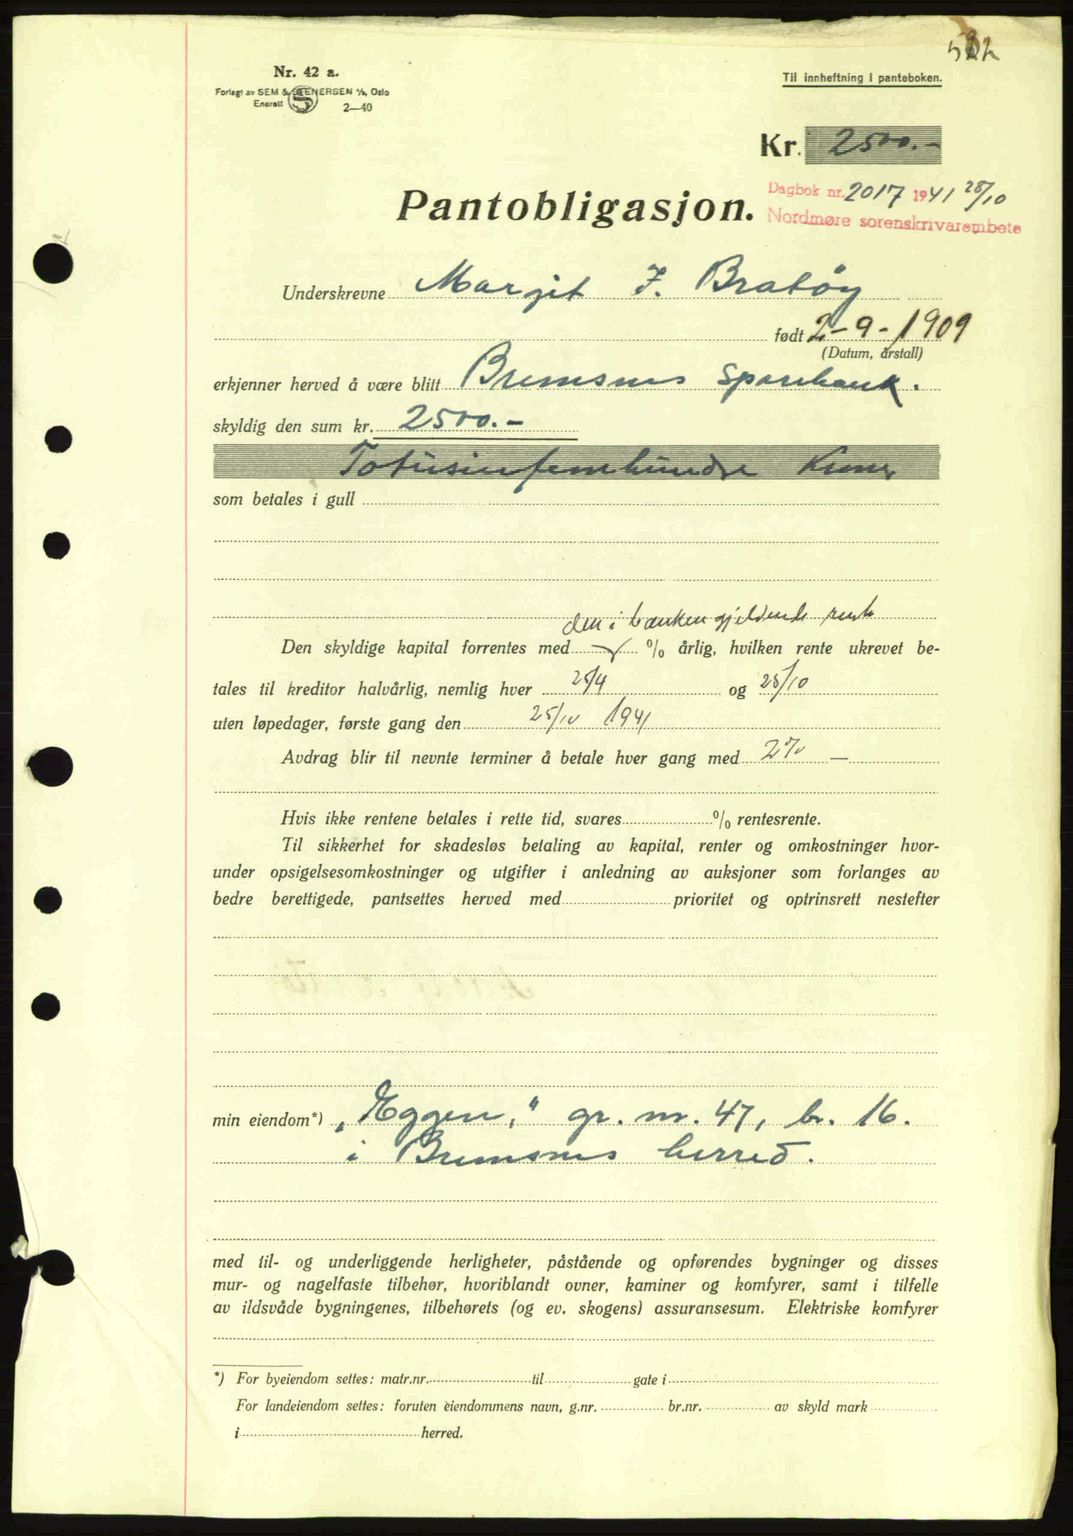 Nr. 42 a.
Forlagt av SEM & STENERSEN A/S, Oslo
Enerett 2—40
Til innheftning i panteboken.
Kr. 2500.-
Dagbok nr. 2017 1941 28/10
Nordmøre sorenskrivarembete
Pantobligasjon.
Underskrevne Margit J. Bratøy
født 2-9-1909
(Datum, årstall)
erkjenner herved å være blitt Bremsnes Sparebank.
skyldig den sum kr. 2500.-
Totusinfemhundre Kroner
som betales i gull
den i banken gjeldende rente
Den skyldige kapital forrentes med % årlig, hvilken rente ukrevet be-
tales til kreditor halvårlig, nemlig hver 25/4 og 25/10
uten løpedager, første gang den 25/10 1941
Avdrag blir til nevnte terminer å betale hver gang med 2% —
Hvis ikke rentene betales i rette tid, svares % rentesrente.
Til sikkerhet for skadesløs betaling av kapital, renter og omkostninger hvor-
under opsigelsesomkostninger og utgifter i anledning av auksjoner som forlanges av
bedre berettigede, pantsettes herved med prioritet og optrinsrett nestefter
min eiendom*) „Eggen," gr. nr. 47, br. 16.
i Bremsnes herred.
med til- og underliggende herligheter, påstående og opførendes bygninger og disses
mur- og nagelfaste tilbehør, hvoriblandt ovner, kaminer og komfyrer, samt i tilfelle
av ildsvåde bygningenes, tilbehørets (og ev. skogens) assuransesum. Elektriske komfyrer
*) For byeiendom settes: matr.nr. til gate i
For landeiendom settes: foruten eiendommens navn, g.nr. br.nr. av skyld mark
i herred.